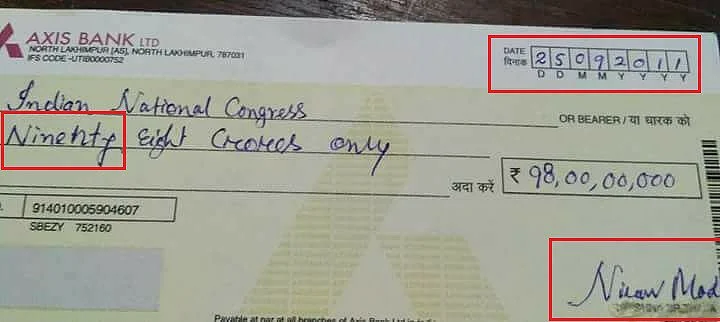 AXIS BANK LTD
NORTH LAKHIMPUR [AS], NORTH LAKHIMPUR, 787031
IFS CODE - UTIB0000752
DATE
दिनांक
25092011
D D M M Y Y Y Y
Indian National Congress
OR BEARER / या धारक को
Ninenty Eight Crores only
अदा करें
₹ 98,00,00,000
914010005904607
SBEZY 752160
Nirav Mod
Payable at par at all branches of Axis Bank Ltd in India